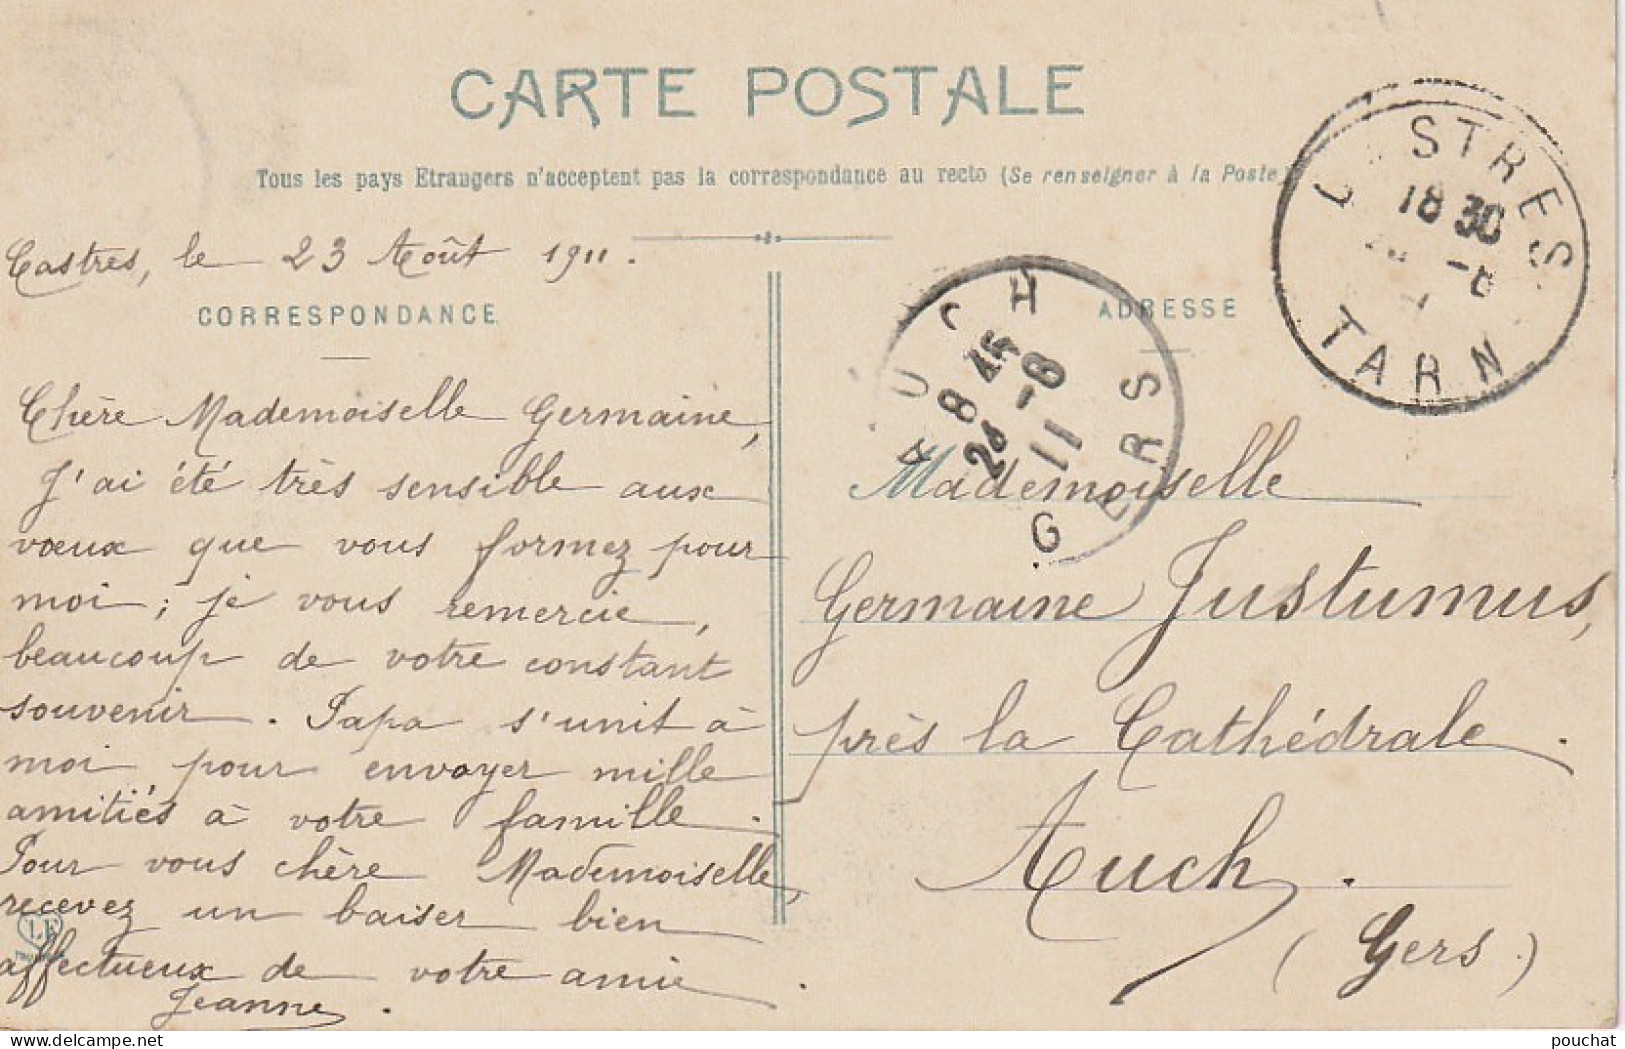 CARTE POSTALE
Tous les pays Etrangers n'acceptent pas la correspondance au recto (Se renseigner à la Poste)
Castres, le 23 Août 1911.
CORRESPONDANCE
Chère Mademoiselle Germaine,
J'ai été très sensible aux
vœux que vous formez pour
moi; je vous remercie,
beaucoup de votre constant
souvenir. Papa s'unit à
moi pour envoyer mille
amitiés à votre famille.
Pour vous chère Mademoiselle,
recevez un baiser bien
affectueux de votre amie
Jeanne.
LF
ADRESSE
Mademoiselle
Germaine Justumus,
près la Cathédrale.
Auch.
(Gers.)
STRES
18 30
-8
TARN
AUCH
8 45
24 -8
11
GERS
delcampe.net
pouchat